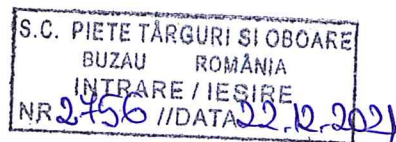 S.C. PIETE TÂRGURI SI OBOARE
BUZAU ROMÂNIA
INTRARE / IESIRE
NR 2756 //DATA 22.12.2021